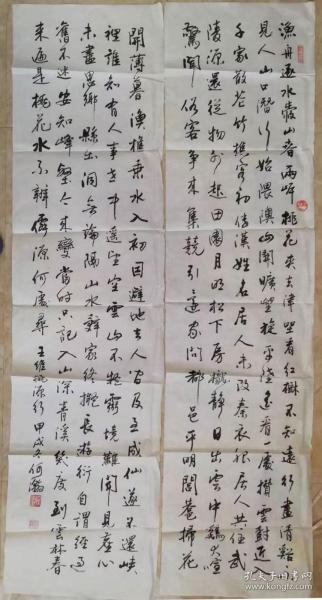 漁舟逐水愛山春兩岸桃花夾去津坐看紅樹不知遠行盡清谿
見人山口潛行始隈隩山開曠望旋平陸遙看一處攢雲樹近入
千家散花竹樵客初傳漢姓名居人未改秦衣服居人共住武
陵源還從物外起田園月明松下房櫳靜日出雲中鷄犬喧
驚聞俗客爭來集競引還家問都邑平明閭巷掃花
開薄暮漁樵乘水入初因避地去人間及至成仙遂不還峽
裡誰知有人事世中遙望空雲山不疑靈境難聞見塵心
未盡思鄉縣出洞無論隔山水辭家終擬長游衍自謂經過
舊不迷安知峰壑今來變當時只記入山深青溪幾度到雲林春
來遍是桃花水不辨僊源何處尋 王維桃源行 甲戌冬何